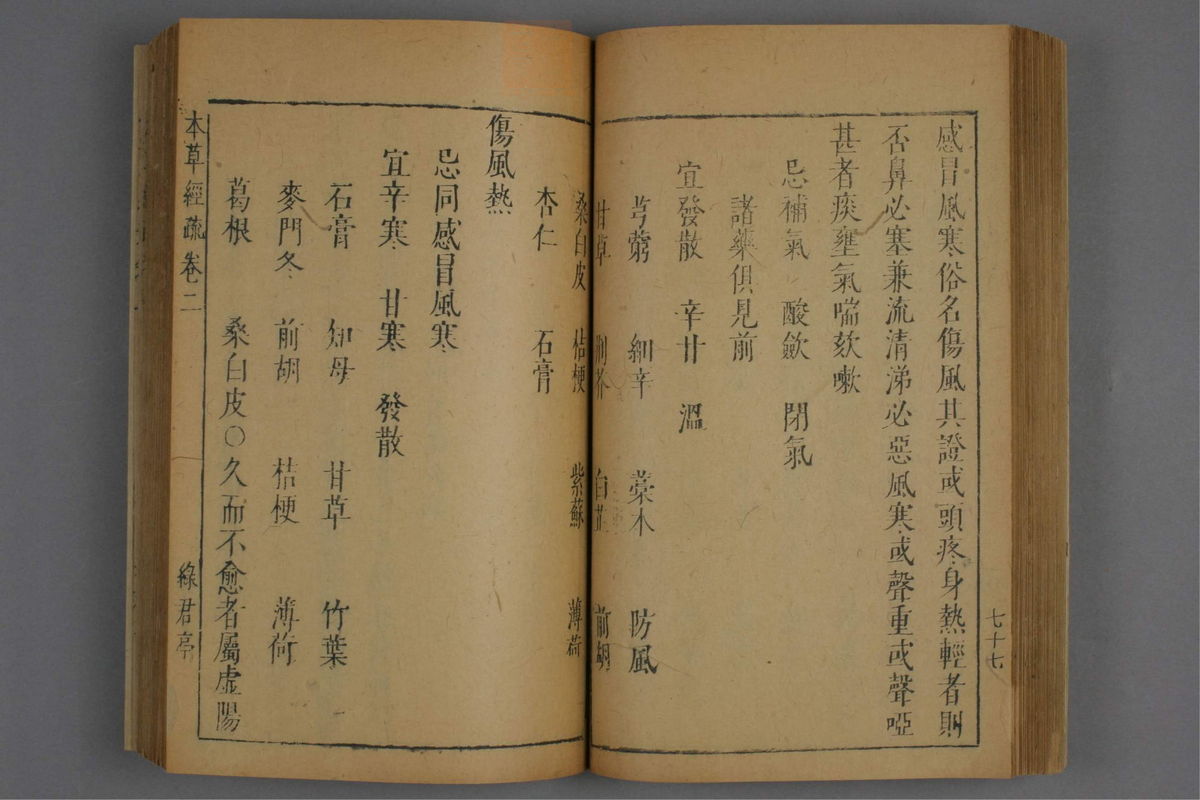 七十七
感冒風寒俗名傷風其證或頭疼身熱輕者則
否鼻必塞兼流清涕必惡風寒或聲重或聲啞
甚者痰壅氣喘欬嗽
忌補氣 酸斂 閉氣
諸藥俱見前
宜發散 辛甘 溫
芎藭 細辛 藁本 防風
甘草 荆芥 白芷 前胡
桑白皮 桔梗 紫蘇 薄荷
杏仁 石膏
傷風熱
忌同感冒風寒
宜辛寒 甘寒 發散
石膏 知母 甘草 竹葉
麥門冬 前胡 桔梗 薄荷
葛根 桑白皮〇久而不愈者屬虛陽
本草經疏 卷二 綠君亭